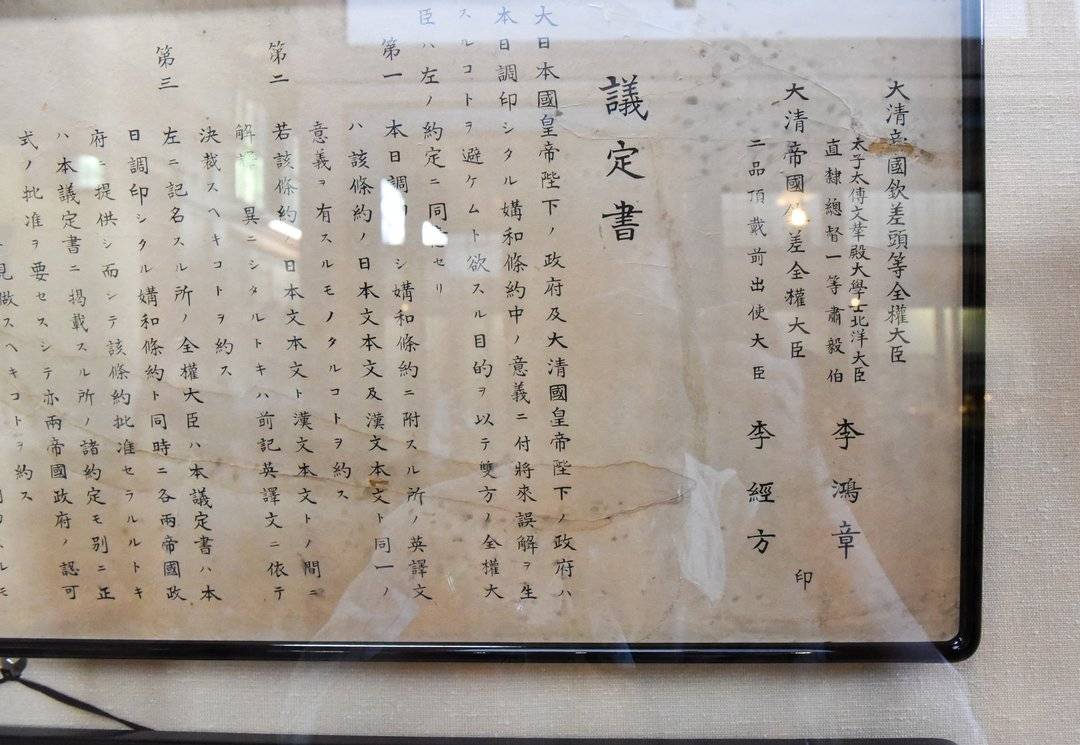 大清帝國欽差頭等全權大臣
太子太傅文華殿大學士北洋大臣
直隸總督一等肅毅伯 李鴻章
大清帝國 差全權大臣
二品頂戴前出使大臣 李經方
印
議定書
大日本國皇帝陛下ノ政府及大清國皇帝陛下ノ政府ハ
本日調印シタル媾和條約中ノ意義ニ付將來誤解ヲ生
スルコトヲ避ケムト欲スル目的ヲ以テ雙方ノ全權大
臣ハ左ノ約定ニ同 セリ
第一 本日調印 シ媾和條約ニ附スル所ノ英譯文
ハ該條約ノ日本文本文及漢文本文ト同一ノ
意義ヲ有スルモノタルコトヲ約ス
第二 若該條約ノ日本文本文ト漢文本文トノ間ニ
解 異ニシタルトキハ前記英譯文ニ依テ
決裁スヘキコトヲ約ス
第三 左ニ記名スル所ノ全權大臣ハ本議定書ハ本
日調印シタル媾和條約ト同時ニ各兩帝國政
府ニ提供シ而シテ該條約批准セラルルトキ
ハ本議定書ニ掲載スル所ノ諸約定モ別ニ正
式ノ批准ヲ要セスシテ亦兩帝國政府ノ認可
見做スヘキコトヲ約ス